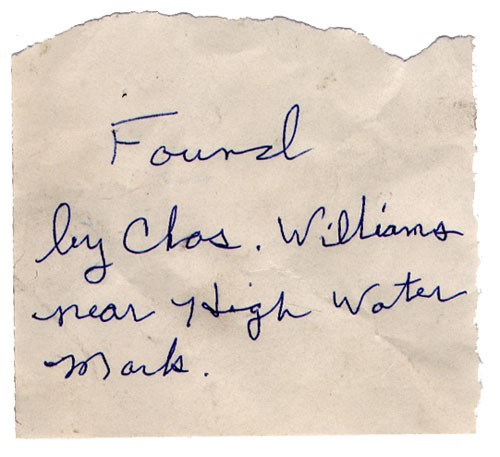 Found
by Chas. Williams
near High Water
Mark.